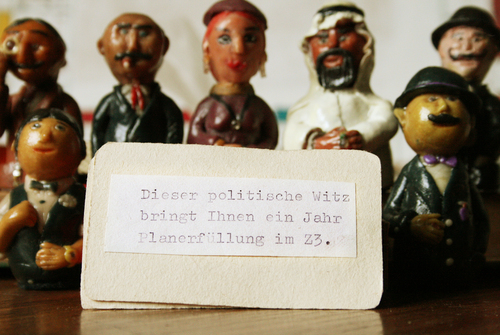 Dieser politische Witz
bringt Ihnen ein Jahr
Planerfüllung im Z3.